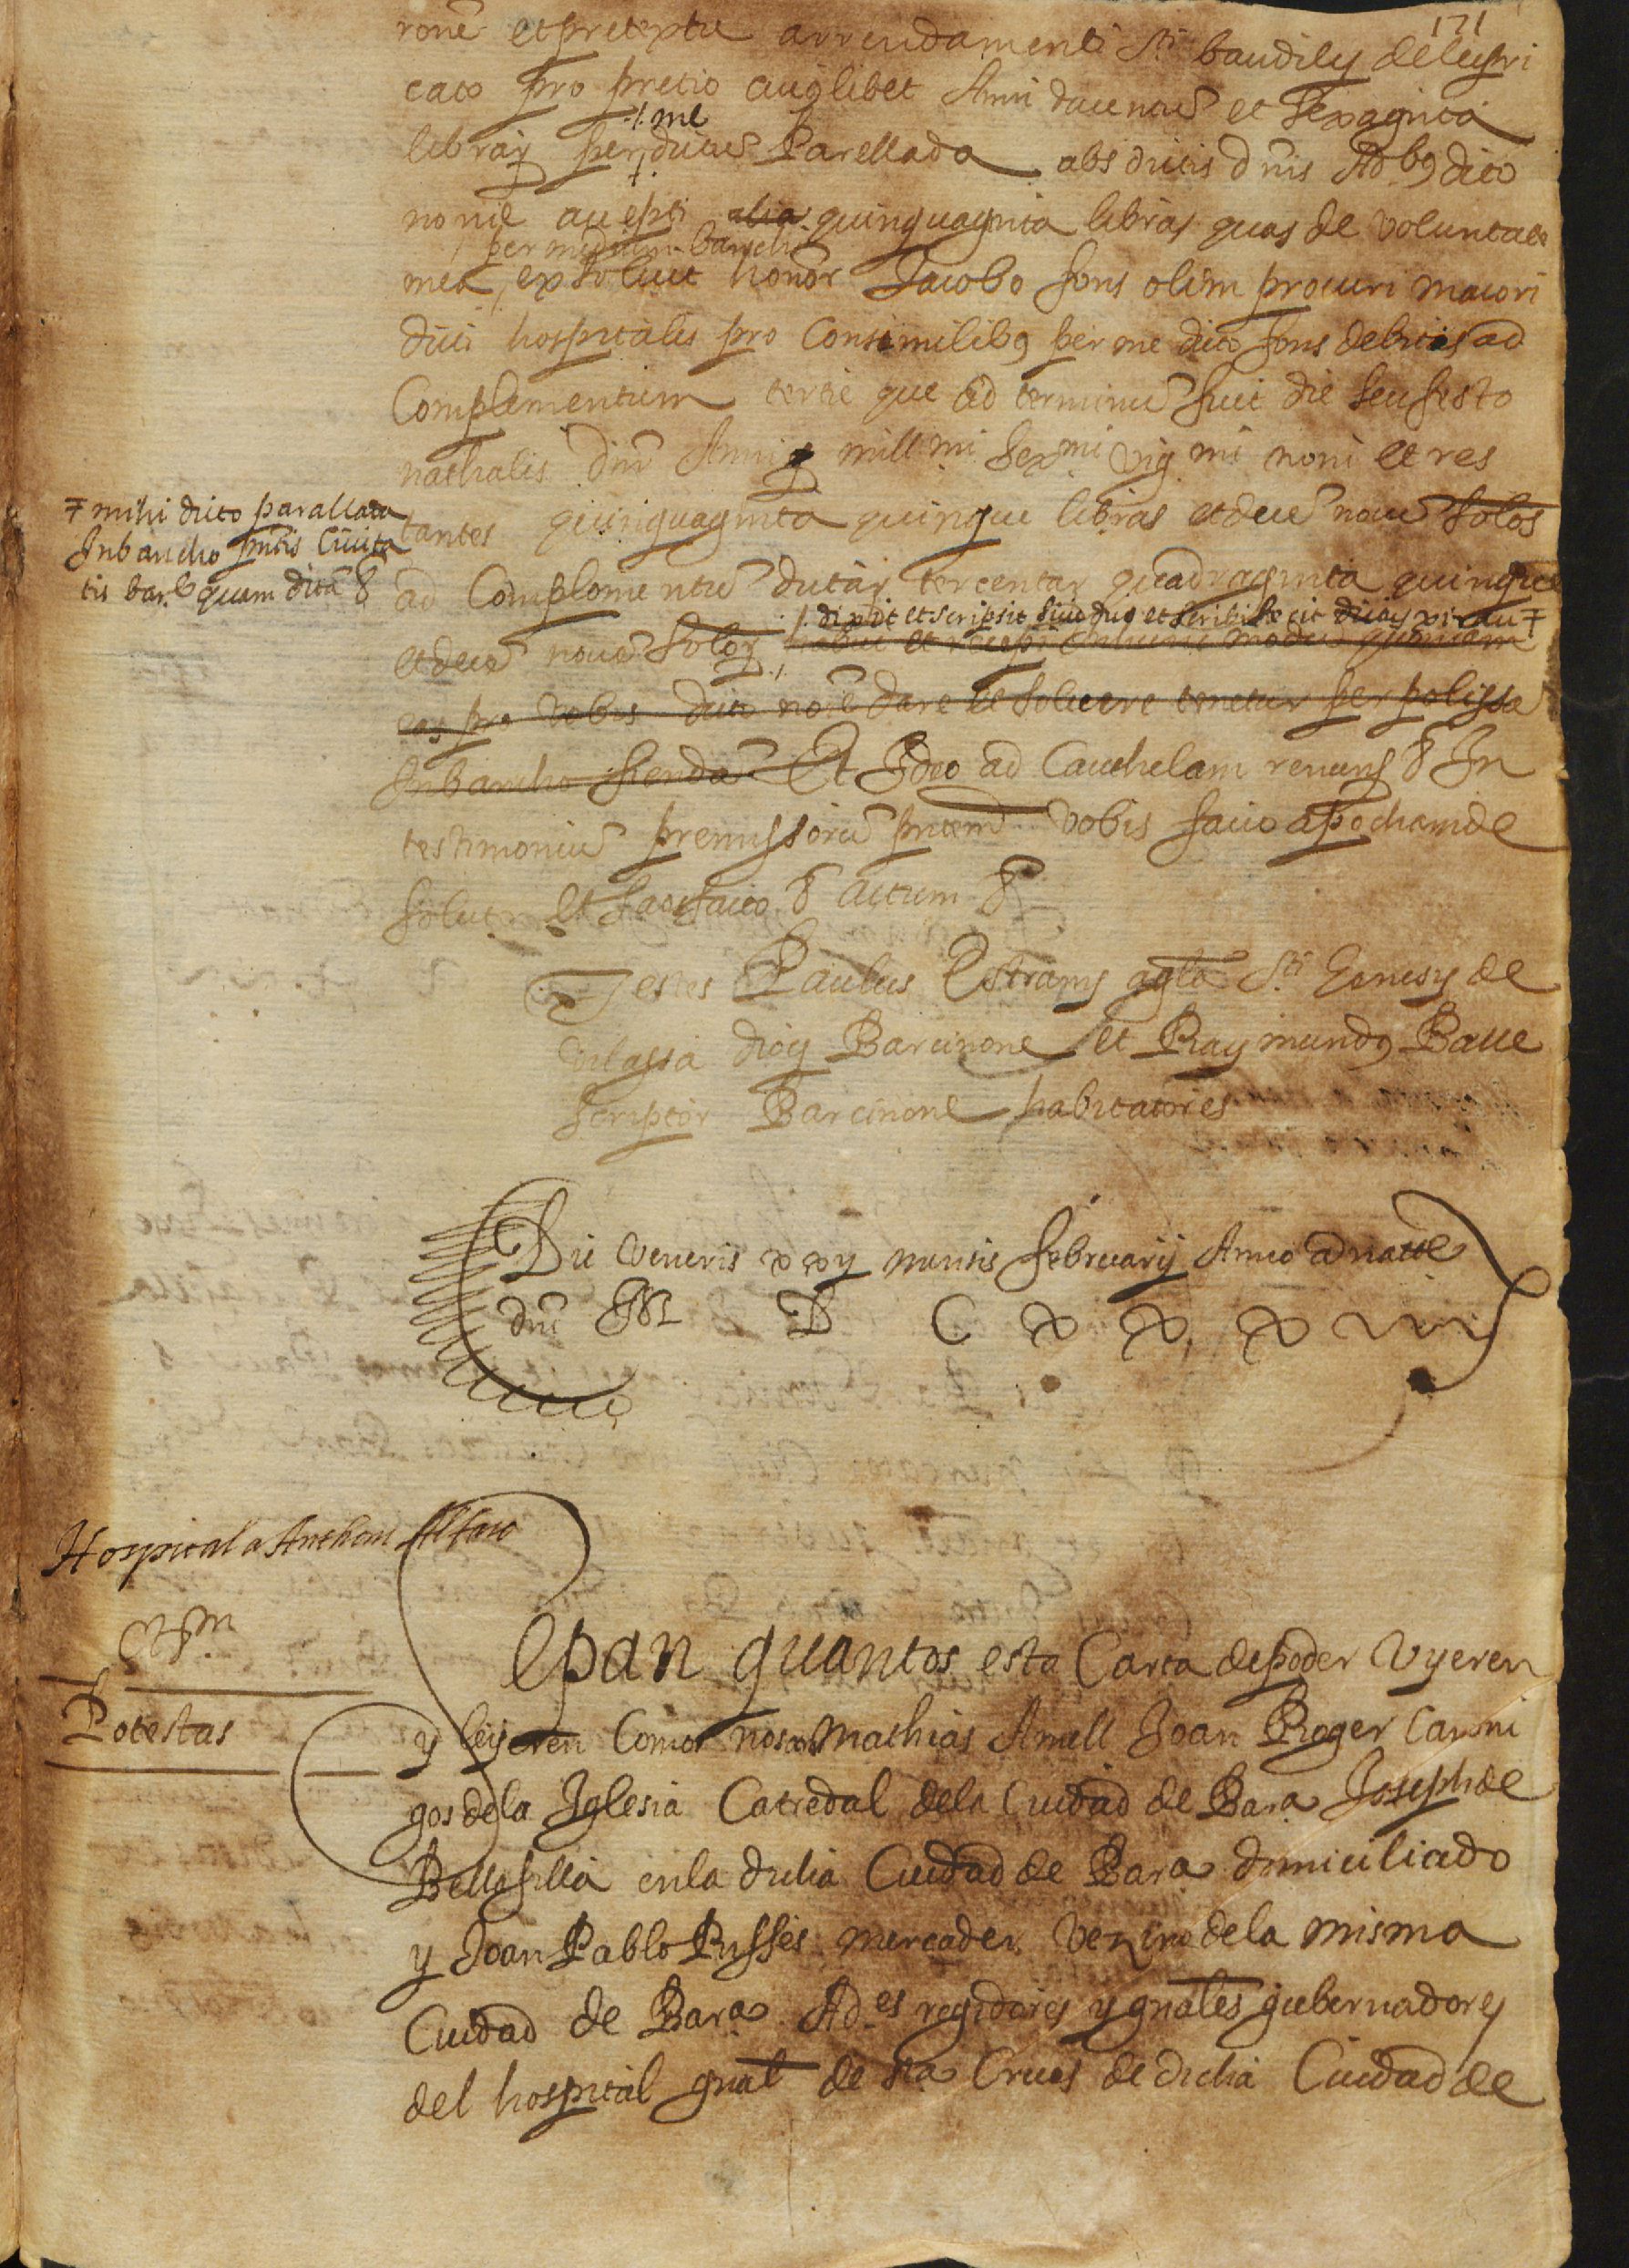 171
rone et pretextu arrendamenti Sti baudilij de lupri
cato pro pretio cuiuslibet Anni ducentaru et sexaginta
·/· me
librar per dictu Parellada abs dictis dnis Adbs dicto
noie accepi alia quinquaginta libras quas de voluntate
per medium banchi
mea exsoluit honor Jacobo fons olim procuri maiori
dicti hospitalis pro Consimilibs per me dicto fons debitis ad
Complementum tertie que ad terminu fuit die seu festo
nathalis dni Anni millmi sexmi vigmi noni et res
tantes quinquaginta quinque libras et dece nove solos
ad Complementu dictar tercentar quadraginta quinque
·/· dixit et scripsit sive dici et scribi fecit
et dece nove soloꝝ habui et recepi
eas pro vobis dicto noie dare et solvere tenetur per polissa
In bancho fienda Et Ideo ad Cauthelam renuns & In
testimoniu premissoru pntem vobis facio apocham de
solut Et Satisfacio & actum &
Ŧ mihi dicto parallada
In bancho pntis Civita
tis barne quam dicta &
Testes Paulus Estrany agla Sti Genesij de
Vilassa diocs Barcinone et Raymunds Batle
scriptor Barcinone habitatores
Die Veneris xxij mensis februarij Anno a natte
dni M D C X X X
Hospital a Anthoni Alfaro
Potestas
Sepan quantos esta Carta de poder vyeren
y leyeren Como nosos Mathias Amell Joan Roger Canoni
gos de la Iglesia Catredal de la Ciudad de Bara Joseph de
Bellafilla en la dicha Ciudad de Bara domiciliado
y Joan Pablo Pusses mercader vezino de la misma
Ciudad de Bara Ades regidores y gnales gubernadores
del hospital gnal de sta Crues de dicha Ciudad de